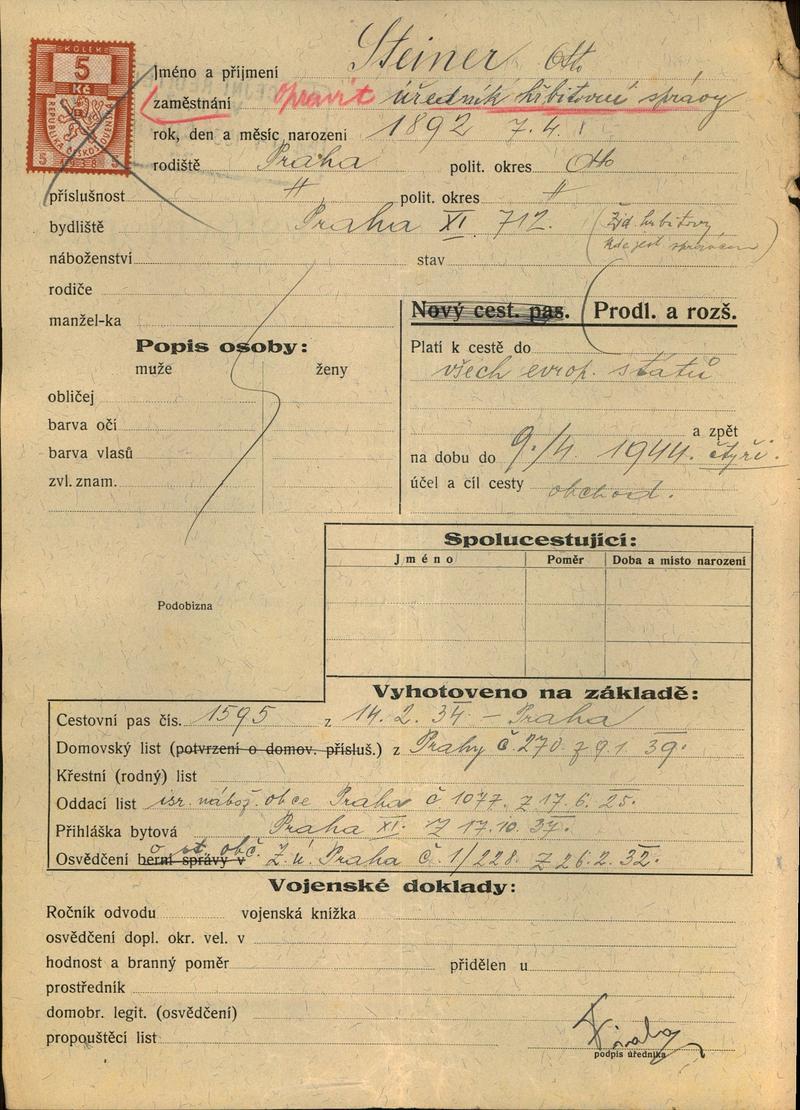 KOLEK
5
Kč
REPUBLIKA ČESKOSLOVENSKÁ
5 1938 5
Jméno a příjmení Steiner Otto
zaměstnání opravit úředník hřbitovní správy
rok, den a měsíc narození 1892 7.4.
rodiště Praha polit. okres Otto
příslušnost " polit. okres "
bydliště Praha XI. 712. (žid. hřbitovy, kde jest správcem)
náboženství stav
rodiče
manžel-ka
Nový cest. pas. Prodl. a rozš.
Popis osoby:
muže ženy
obličej
barva očí
barva vlasů
zvl. znam.
Platí k cestě do
všech evrop. států
a zpět
na dobu do 9./4. 1944. čtyři.
účel a cíl cesty obchod.
Podobizna
Spolucestující:
Jméno Poměr Doba a místo narození
Vyhotoveno na základě:
Cestovní pas čís. 1595 z 14.2.34 – Praha
Domovský list (potvrzení o domov. přísluš.) z Prahy č. 270. z 9.1.39.
Křestní (rodný) list
Oddací list isr. nábož. obce Praha č 1077. z 17.6.25.
Přihláška bytová Praha XI. z 17.10.37.
Osvědčení berní správy v o st. obč. Z.ú. Praha č. 1/228. z 26.2.32.
Vojenské doklady:
Ročník odvodu vojenská knížka
osvědčení dopl. okr. vel. v
hodnost a branný poměr přidělen u
prostředník
domobr. legit. (osvědčení)
propouštěcí list
podpis úředníka